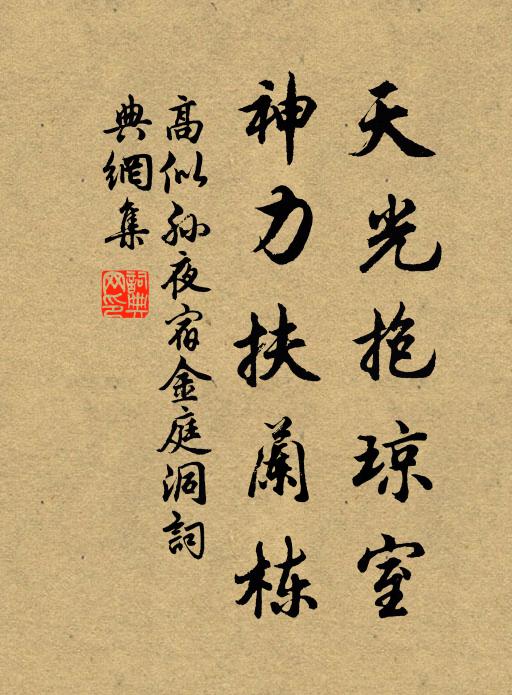 天光抱琼室
神力扶蘭栋
高似孙夜宿金庭洞詞
典網集
詞典
网印